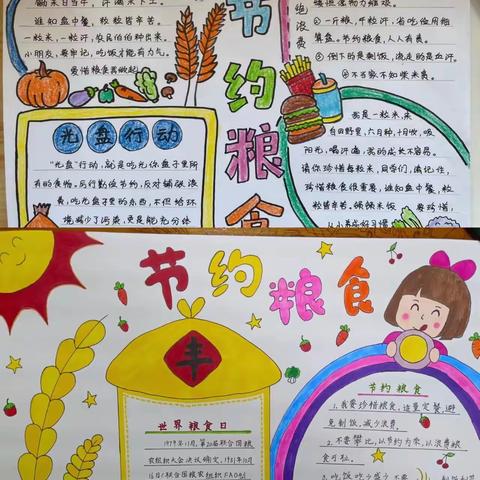 锄禾日当午,汗滴禾下土。
谁知盘中餐,粒粒皆辛苦。
一粒米,一粒汗,农民伯伯种出来。
小朋友,要牢记,吃饱饭才能有力气。
爱惜粮食
节约粮食
绝浪费
②一斤粮,千粒汗,省吃俭用细
算盘。节约粮食,人人有责。
③倒下的是剩饭,流走的是血汗。
④不当家不知柴米贵。
光盘行动
“光盘”行动,就是吃光你盘子里所
有的食物。厉行勤俭节约,反对铺张浪
费,吃光盘子里的东西,不但给环
境减少了污染,更是能充分体
我是一粒米,来
自田野里,六月种,十月收,吸
阳光,喝汗滴,我的成长不容易。
请你珍惜每粒米,同学们,请记住,
珍惜粮食很重要,谁知盘中餐,粒
粒皆辛苦。
要珍惜,
节约粮食
丰
世界粮食日
1979年11月,第20届联合国粮
农组织大会决议确定,1981年10月
16日(联合国粮农组织FAO创
节约粮食
1.我要珍惜粮食,适量定餐,避
免剩饭,减少浪费。
2.不要攀比,以节约为荣,以浪费粮
食可耻。
3.吃饭吃少盛少,不要